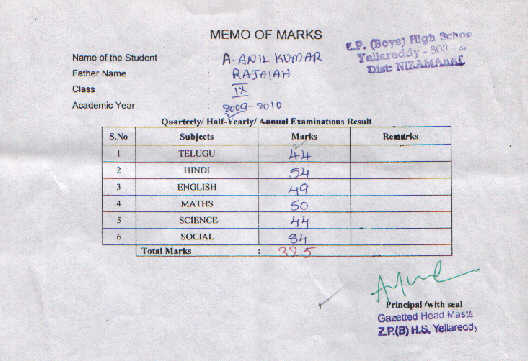 MEMO OF MARKS
Z.P. (Boys) High School
Yellareddy - 503
Dist: NIZAMABAD
Name of the Student : A. ANIL KUMAR
Father Name : RAJAIAH
Class : IX
Academic Year : 2009-2010
Quarterly/ Half-Yearly/ Annual Examinations Result
S.No Subjects Marks Remarks
1 TELUGU 44
2 HINDI 54
3 ENGLISH 49
4 MATHS 50
5 SCIENCE 44
6 SOCIAL 84
Total Marks : 325
Principal /with seal
Gazetted Head Maste
Z.P.(B) H.S. Yellareddy